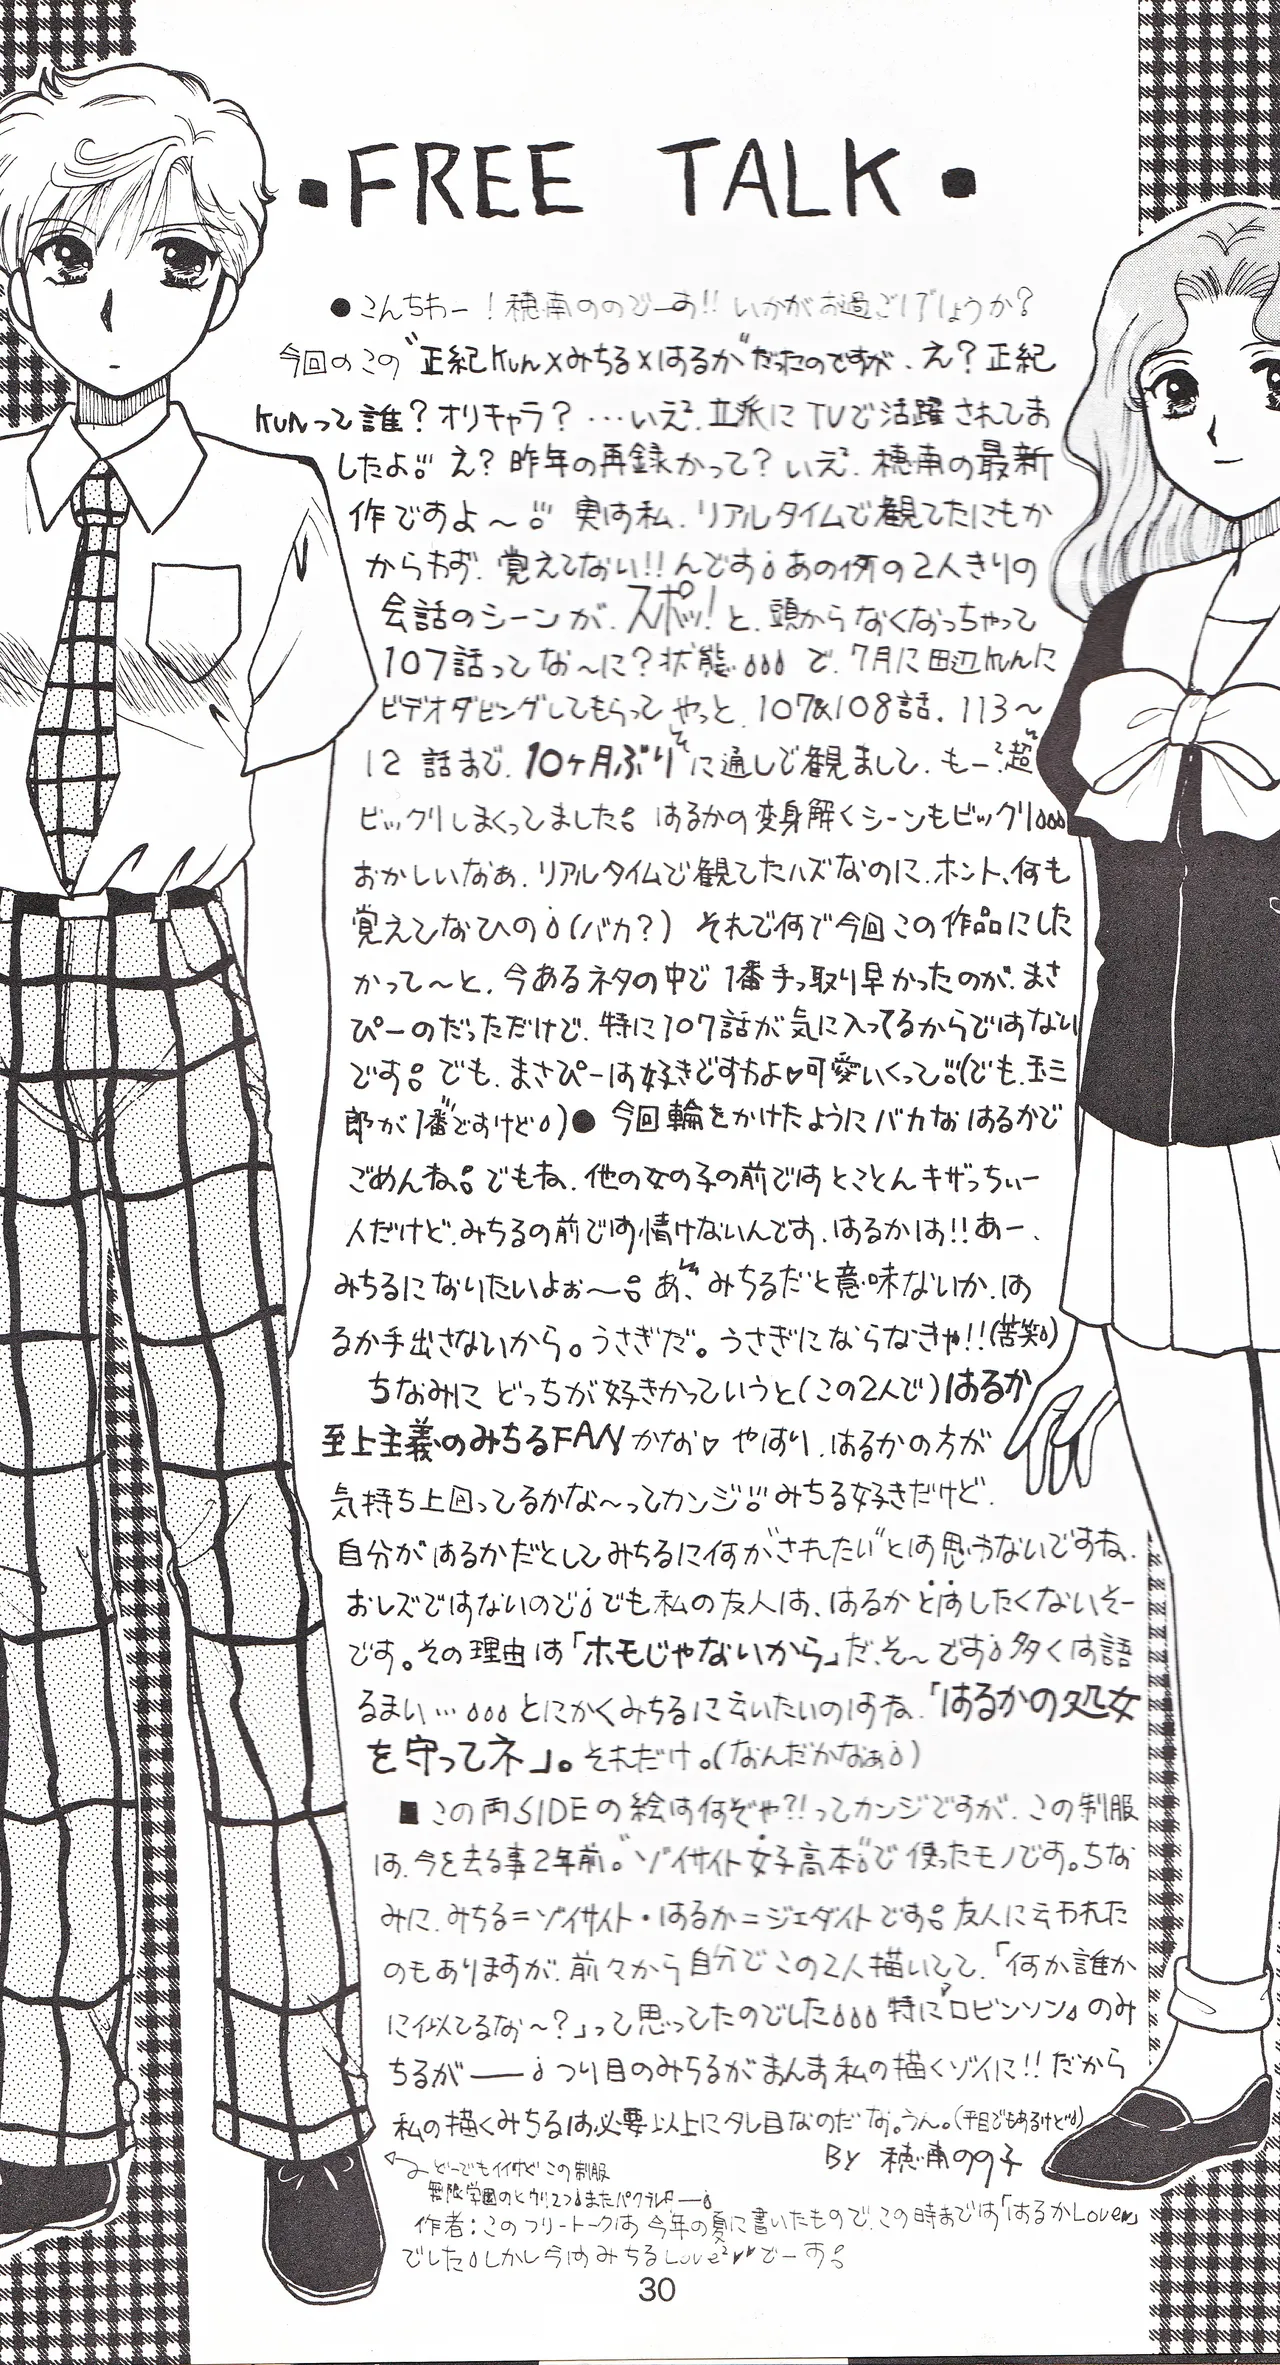 ■FREE TALK■
●こんちわー!穂南ののでーす!!いかがお過ごしでしょうか?
今回のこの"正紀kun×みちる×はるか"だったのですが、え?正紀
kunって誰?オリキャラ?…いえ²、立派にTVで活躍されてま
したよ!!え?昨年の再録かって?いえ²、穂南の最新
作ですよ〜!!実は私、リアルタイムで観てたにもか
かわらず、覚えてない!!んです。あの例の2人きりの
会話のシーンが、スポッ!と、頭からなくなっちゃって
107話ってな〜に?状態…で、7月に田辺kunに
ビデオダビングしてもらってやっと、107&108話、113〜
12 話まで、10ヶ月ぶりに通しで観まして、もー、超
ビックリしまくってました。はるかの変身解くシーンもビックリ
おかしいなぁ、リアルタイムで観てたハズなのに、ホント、何も
覚えてなひの(バカ?) それで何で今回この作品にした
かって〜と、今あるネタの中で1番手っ取り早かったのが、まさ
ぴーのだっただけで、特に107話が気に入ってるからではない
です。でも、まさぴーは好きですわよ♡可愛いくって!!(でも、玉三
郎が"1番"ですけど)●今回輪をかけたようにバカなはるかで
ごめんね。でもね、他の女の子の前ではとことんキザっちぃー
人だけど、みちるの前では情けないんです、はるかは!!あー、
みちるになりたいよぉ〜。あ、みちるだと意味ないか、は
るか手出さないから。うさぎだ。うさぎにならなきゃ!!(苦笑)
ちなみにどっちが好きかっていうと(この2人で)はるか
至上主義のみちるFANかな♡やはり、はるかの方が
気持ち上回ってるかな〜ってカンジ!!みちる好きだけど、
自分がはるかだとしてみちるに何か"されたい"とは思わないですね、
おレズではないので。でも私の友人は、はるかとはしたくないそー
です。その理由は「ホモじゃないから」だ、そ〜です。多くは語
るまい…とにかくみちるに云いたいのはね、「はるかの処女
を守ってネ」。それだけ。(なんだかなぁ)
■この両SIDEの絵は何ぞや?!ってカンジですが、この制服
は、今を去る事2年前。"ゾイサイト女子高本"で使ったモノです。ちな
みに、みちる=ゾイサイト・はるか=ジェダイトです。友人に云われた
のもありますが、前々から自分でこの2人描いてて、「何か誰か
に似てるな〜?」って思ってたのでした。特に"ロビンソン"のみ
ちるが——つり目のみちるがまんま私の描くゾイに!!だから
私の描くみちるは必要以上にタレ目なのだな。うん。(平目でもあるけど)
BY 穂南のの子
どーでもイイけどこの制服
無限学園のとクリソツまたパクラレー
作者:このフリートークは今年の夏に書いたもので、この時までは「はるかLove♥」
でした。しかし今はみちるLove²♥♥でーす。
30